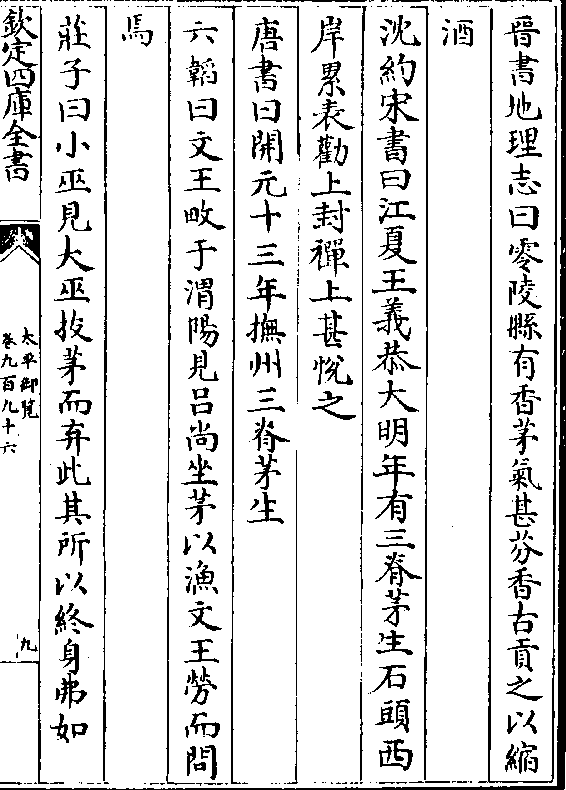 晉書地理志曰零陵縣有香茅氣甚芬香古貢之以縮
酒
沈約宋書曰江夏王義恭大明年有三脊茅生石頭西
岸累表勸上封禪上甚悅之
唐書曰開元十三年撫州三脊茅生
六韜曰文王畋于渭陽見吕尚坐茅以漁文王勞而問
焉
莊子曰小巫見大巫拔茅而弃此其所以終身弗如
欽定四庫全書
太平御覧
卷九百九十六
九